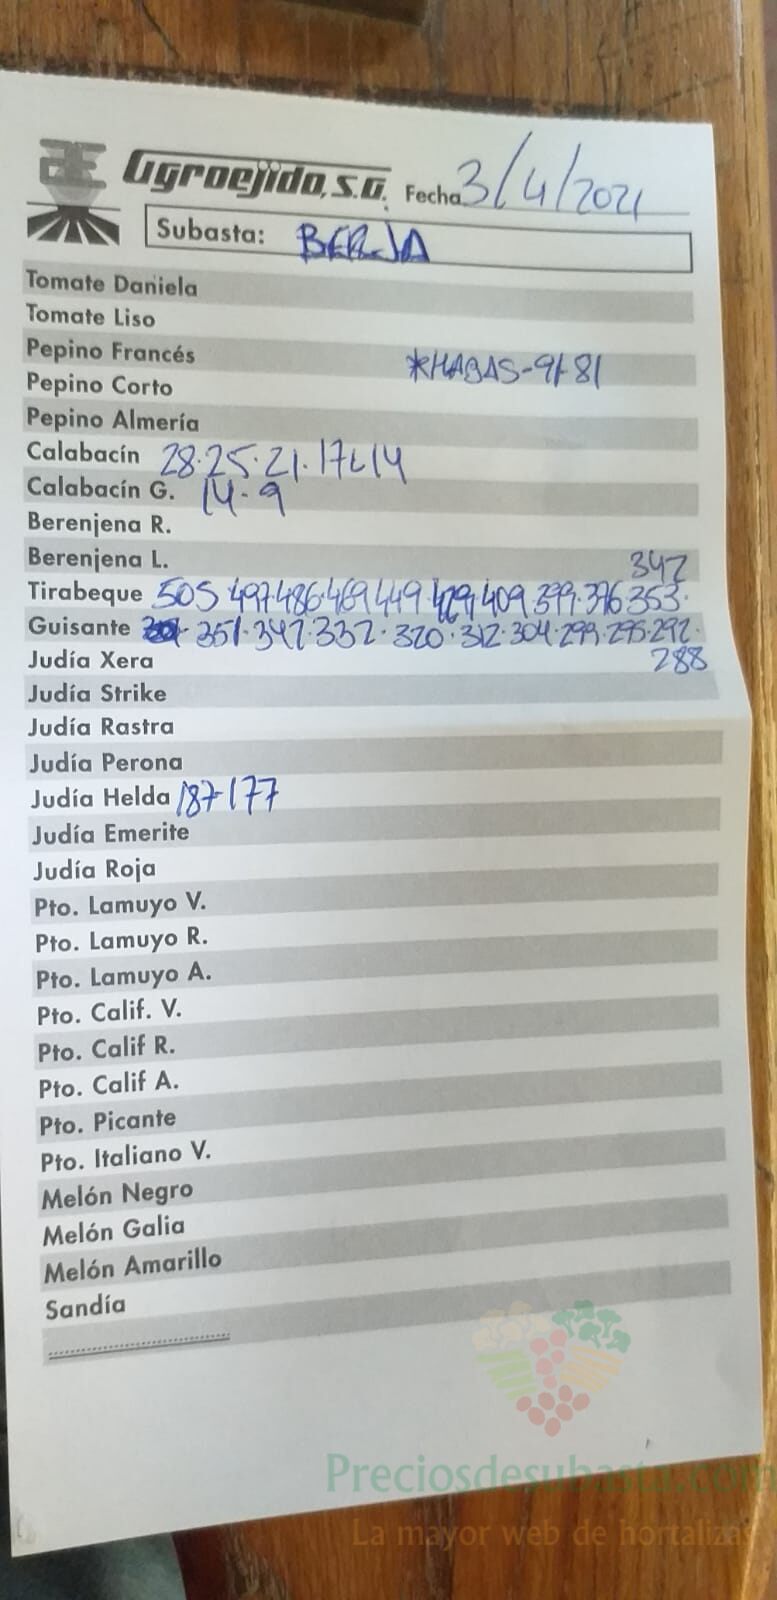 Agroejido, S.A. Fecha 3/4/2021
Subasta: BERJA
Tomate Daniela
Tomate Liso
Pepino Francés
*HABAS-91-81
Pepino Corto
Pepino Almería
Calabacín 28.25.21.17L14
Calabacín G. 14-9
Berenjena R.
Berenjena L.
342
Tirabeque 505 497.486.469 449.429.409.399.376.353.
Guisante 351.342.332.320.312.304.299.295.292.
288
Judía Xera
Judía Strike
Judía Rastra
Judía Perona
Judía Helda 187-177
Judía Emerite
Judía Roja
Pto. Lamuyo V.
Pto. Lamuyo R.
Pto. Lamuyo A.
Pto. Calif. V.
Pto. Calif R.
Pto. Calif A.
Pto. Picante
Pto. Italiano V.
Melón Negro
Melón Galia
Melón Amarillo
Sandía
Preciosdesubasta.com
La mayor web de hortalizas